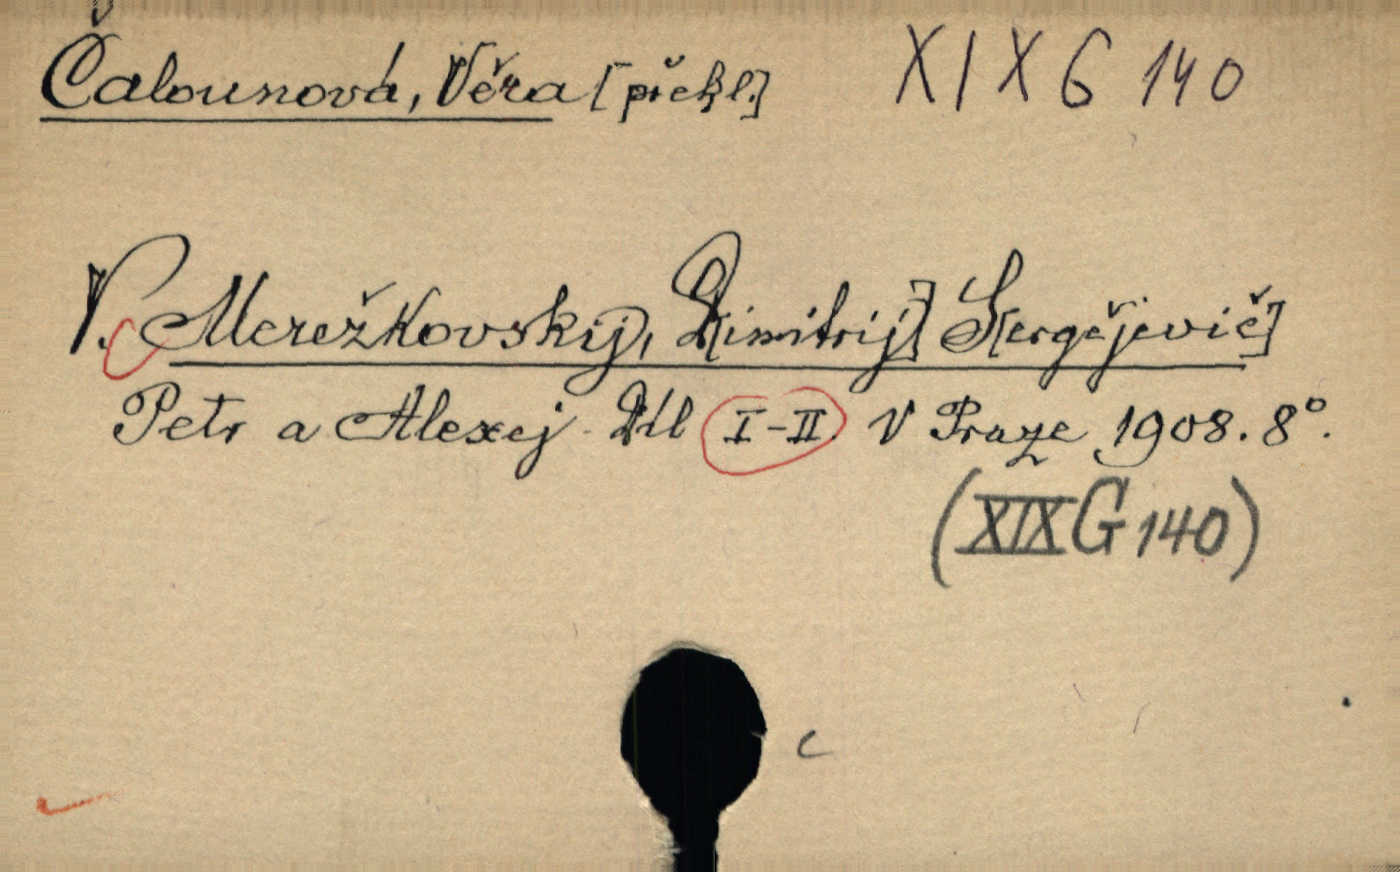 Čalounová, Věra [překl.] XIX G 140
V. Merežkovskij, D[imitrij] S[ergějevič]
Petr a Alexej. Díl I-II. V Praze 1908. 8°.
(XIX G 140)
c